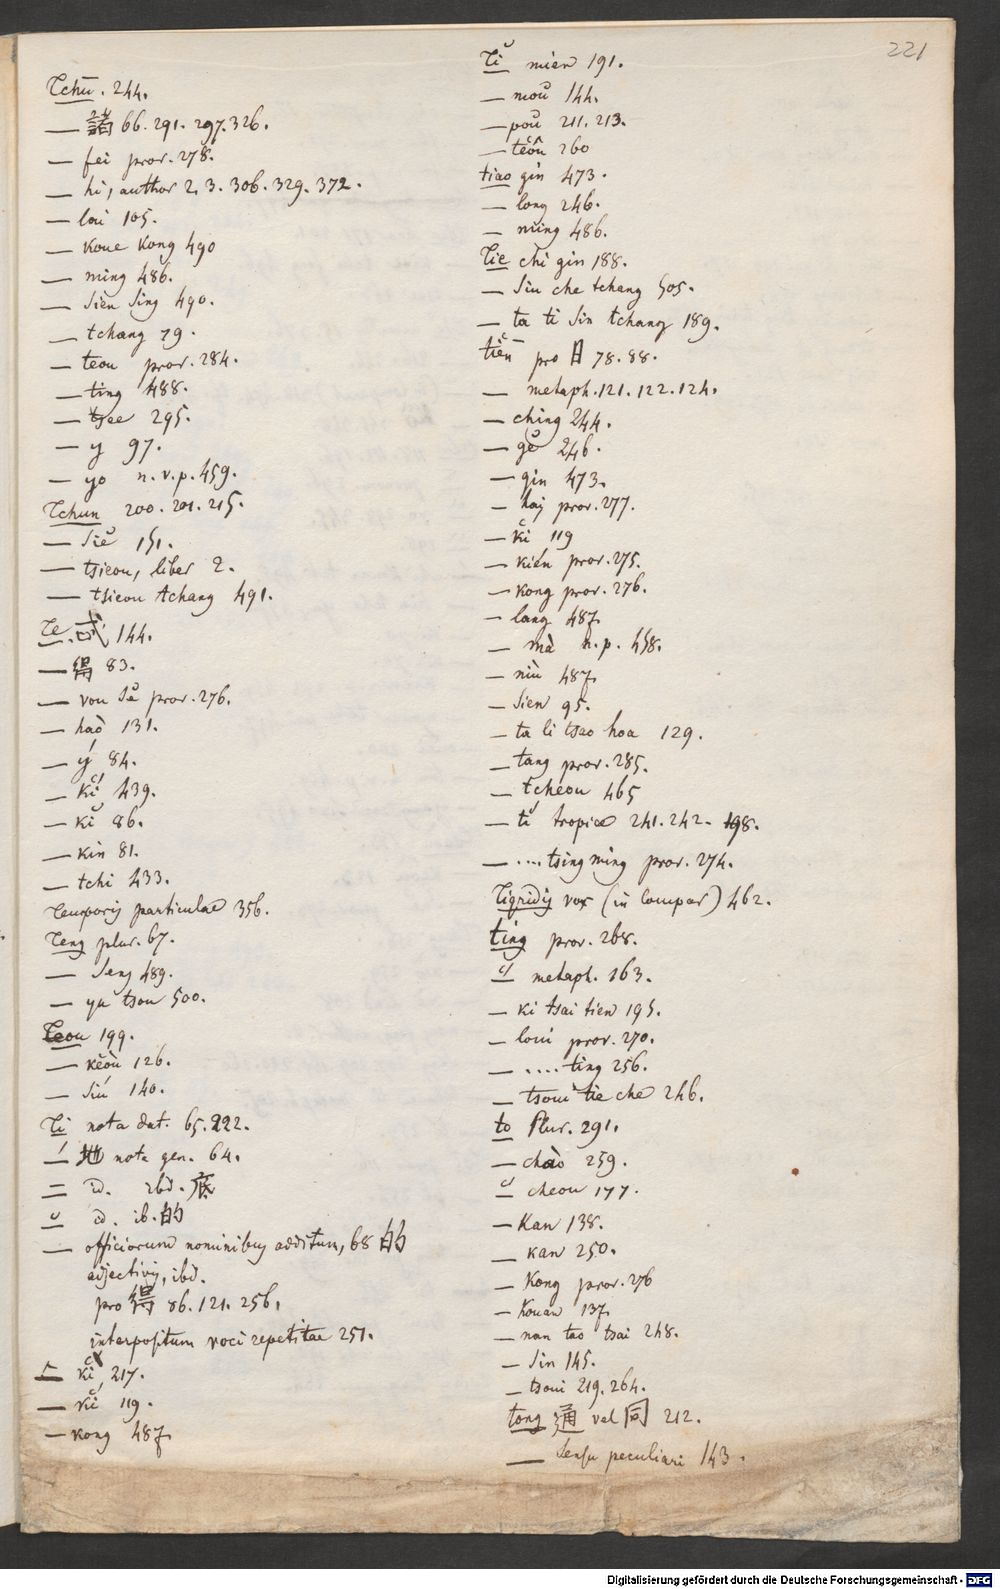 221
Tchū. 244.
— 諸 66. 291. 297. 326.
— fei prov. 278.
— hi, author 2. 3. 306. 329. 372.
— lai 105.
— koue kong 490
— ming 486.
— sien sing 490.
— tchang 79.
— teou prov. 284.
— ting 488.
— tsee 295.
— y 97.
— yo n. v. p. 459.
Tchun 200. 201. 215.
— siĕ 151.
— tsieou, liber 2.
— tsieou tchang 491.
Te. 忒 144.
— 得 83.
— vou sĕ prov. 276.
— haò 131.
— ý 84.
— kĭ 439.
— kĭ 86.
— kin 81.
— tchi 433.
Temporis particulae 356.
Teng plur. 67.
— seng 489.
— yu tsou 500.
Teou 199.
— keòu 126.
— siú 140.
Ti nota dat. 65. 222.
— 地 nota gen. 64.
= id. ibd. 底
— id. ib. 的
— officiorum nominibus additum, 68 的
adjectivis, ibd.
pro 得 86. 121. 256.
interpositum voci repetitae 251.
— ki 217.
— kĭ 119.
— kong 487
Tĭ mien 191.
— moŭ 144.
— poŭ 211. 213.
— teôu 260
tiao gin 473.
— long 246.
— ming 486.
Tie chi gin 188.
— siu che tchang 505.
— ta ti sin tchang 189.
tiēn pro 日 78. 88.
— metaph. 121. 122. 124.
— ching 244.
— gĕ 246.
— gin 473.
— hay prov. 277.
— kĭ 119
— kién prov. 275.
— kong prov. 276.
— lang 487
— mà n. p. 458.
— niù 487
— sien 95.
— ta li tsao hoa 129.
— tang prov. 285.
— tcheou 465
— tí tropice 241. 242. 198.
— .... tsing ming prov. 274.
Tigridis vox (in compar) 462.
ting prov. 268.
— metaph. 163.
— ki tsai tien 195.
— loui prov. 270.
— .... ting 256.
— tsoui tie che 246.
to Plur. 291.
— chào 259.
— cheou 177.
— Kan 138.
— kan 250.
— Kong prov. 276
— Kouan 137.
— nan tao tsai 248.
— sin 145.
— tsoui 219. 264.
tong 通 vel 同 212.
— sensu peculiari 143.
Digitalisierung gefördert durch die Deutsche Forschungsgemeinschaft - DFG